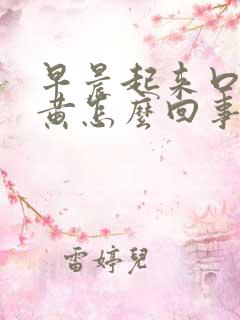 早晨起来口
黄怎麼回事
雷婷兒